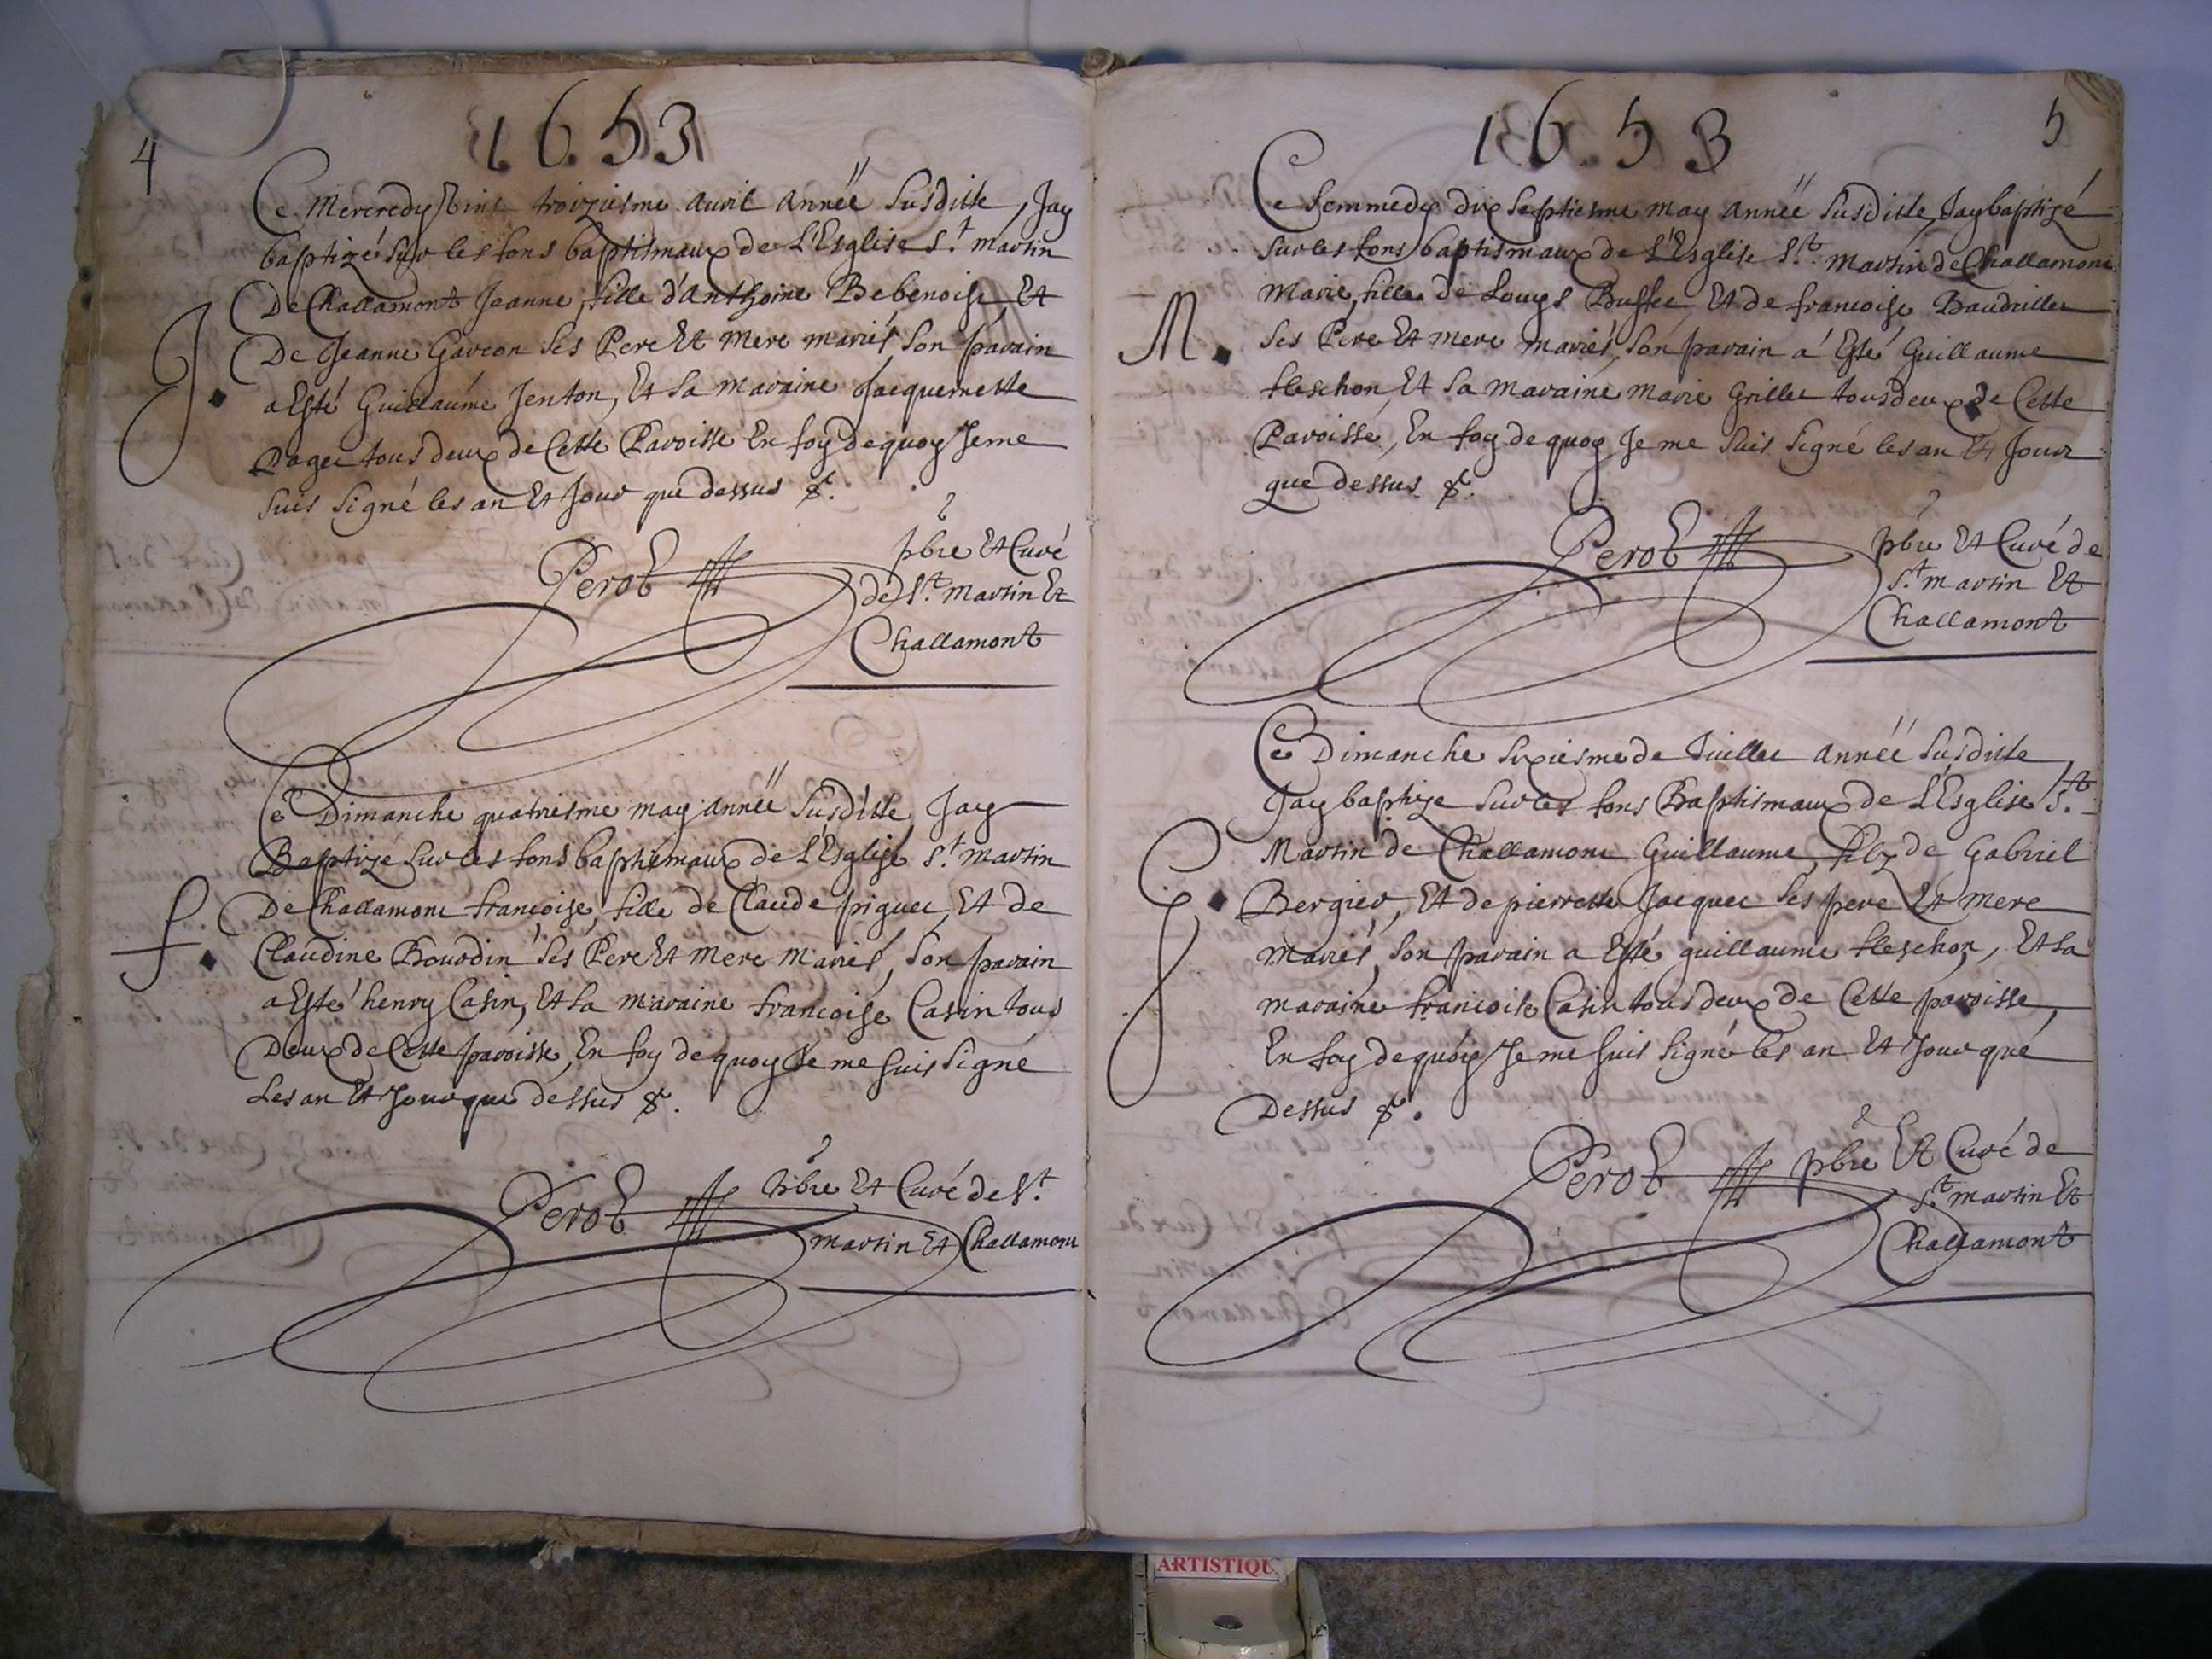 4
1653
Ce Mercredy Vint troiziesme auvil Année Susditte, Jay
baptizé Sur les fons baptismaux de L'Esglise S.t martin
De Challamont Jeanne, fille d'Anthoine Bebenoise, Et
J.
De Jeanne Garcon Ses Pere Et mere mariés, Son parain
a Esté Guillaume Jenton, Et Sa maraine Jacquemette
Pager tous deux de Cette Paroisse En foy de quoy Je me
Suis Signé les an Et Jour que dessus &c.
Perot pbre Et Curé
de S.t Martin Et
Challamont
Ce Dimanche quatriesme may année Susditte, Jay
Baptizé Sur les fons baptismaux de L'Esglise S.t martin
De Challamont francoise, fille de Claude piguet, Et de
f.
Claudine Bourdin Ses Pere Et mere mariés, Son parain
a Esté henry Casin, Et Sa maraine francoise Casin tous
Deux de Cette paroisse, En foy de quoy Je me Suis Signé
Les an Et Jour que dessus &c.
Perot pbre Et Curé de S.t
martin Et Challamont
1653
5
Ce Sommedy dix Septiesme may année Susditte, Jay baptizé
Sur les fons baptismaux de L'Esglise S.t Martin de Challamont
Marie, fille de Louys Buffet, Et de francoise Baudrillet
M.
Ses Pere Et mere mariés, Son parain a Esté Guillaume
fleschon, Et Sa maraine marie Grillet tous deux de Cette
Paroisse, En foy de quoy Je me Suis Signé les an Et Jour
que dessus &c.
Perot pbre Et Curé de
S.t martin Et
Challamont
Ce Dimanche Sixiesme de Juillet année Susditte,
Jay baptize Sur les fons Baptismaux de L'Esglise S.t
Martin de Challamont Guillaume, filz de Gabriel
G.
Bergier, Et de pierrette Jacquet Ses pere Et mere
mariés, Son parain a Esté guillaume fleschon, Et Sa
maraine francoise Casin tous deux de Cette paroisse,
En foy de quoy Je me Suis Signé les an Et Jour que
Dessus &c.
Perot pbre Et Curé de
S.t martin Et
Challamont
ARTISTIQU